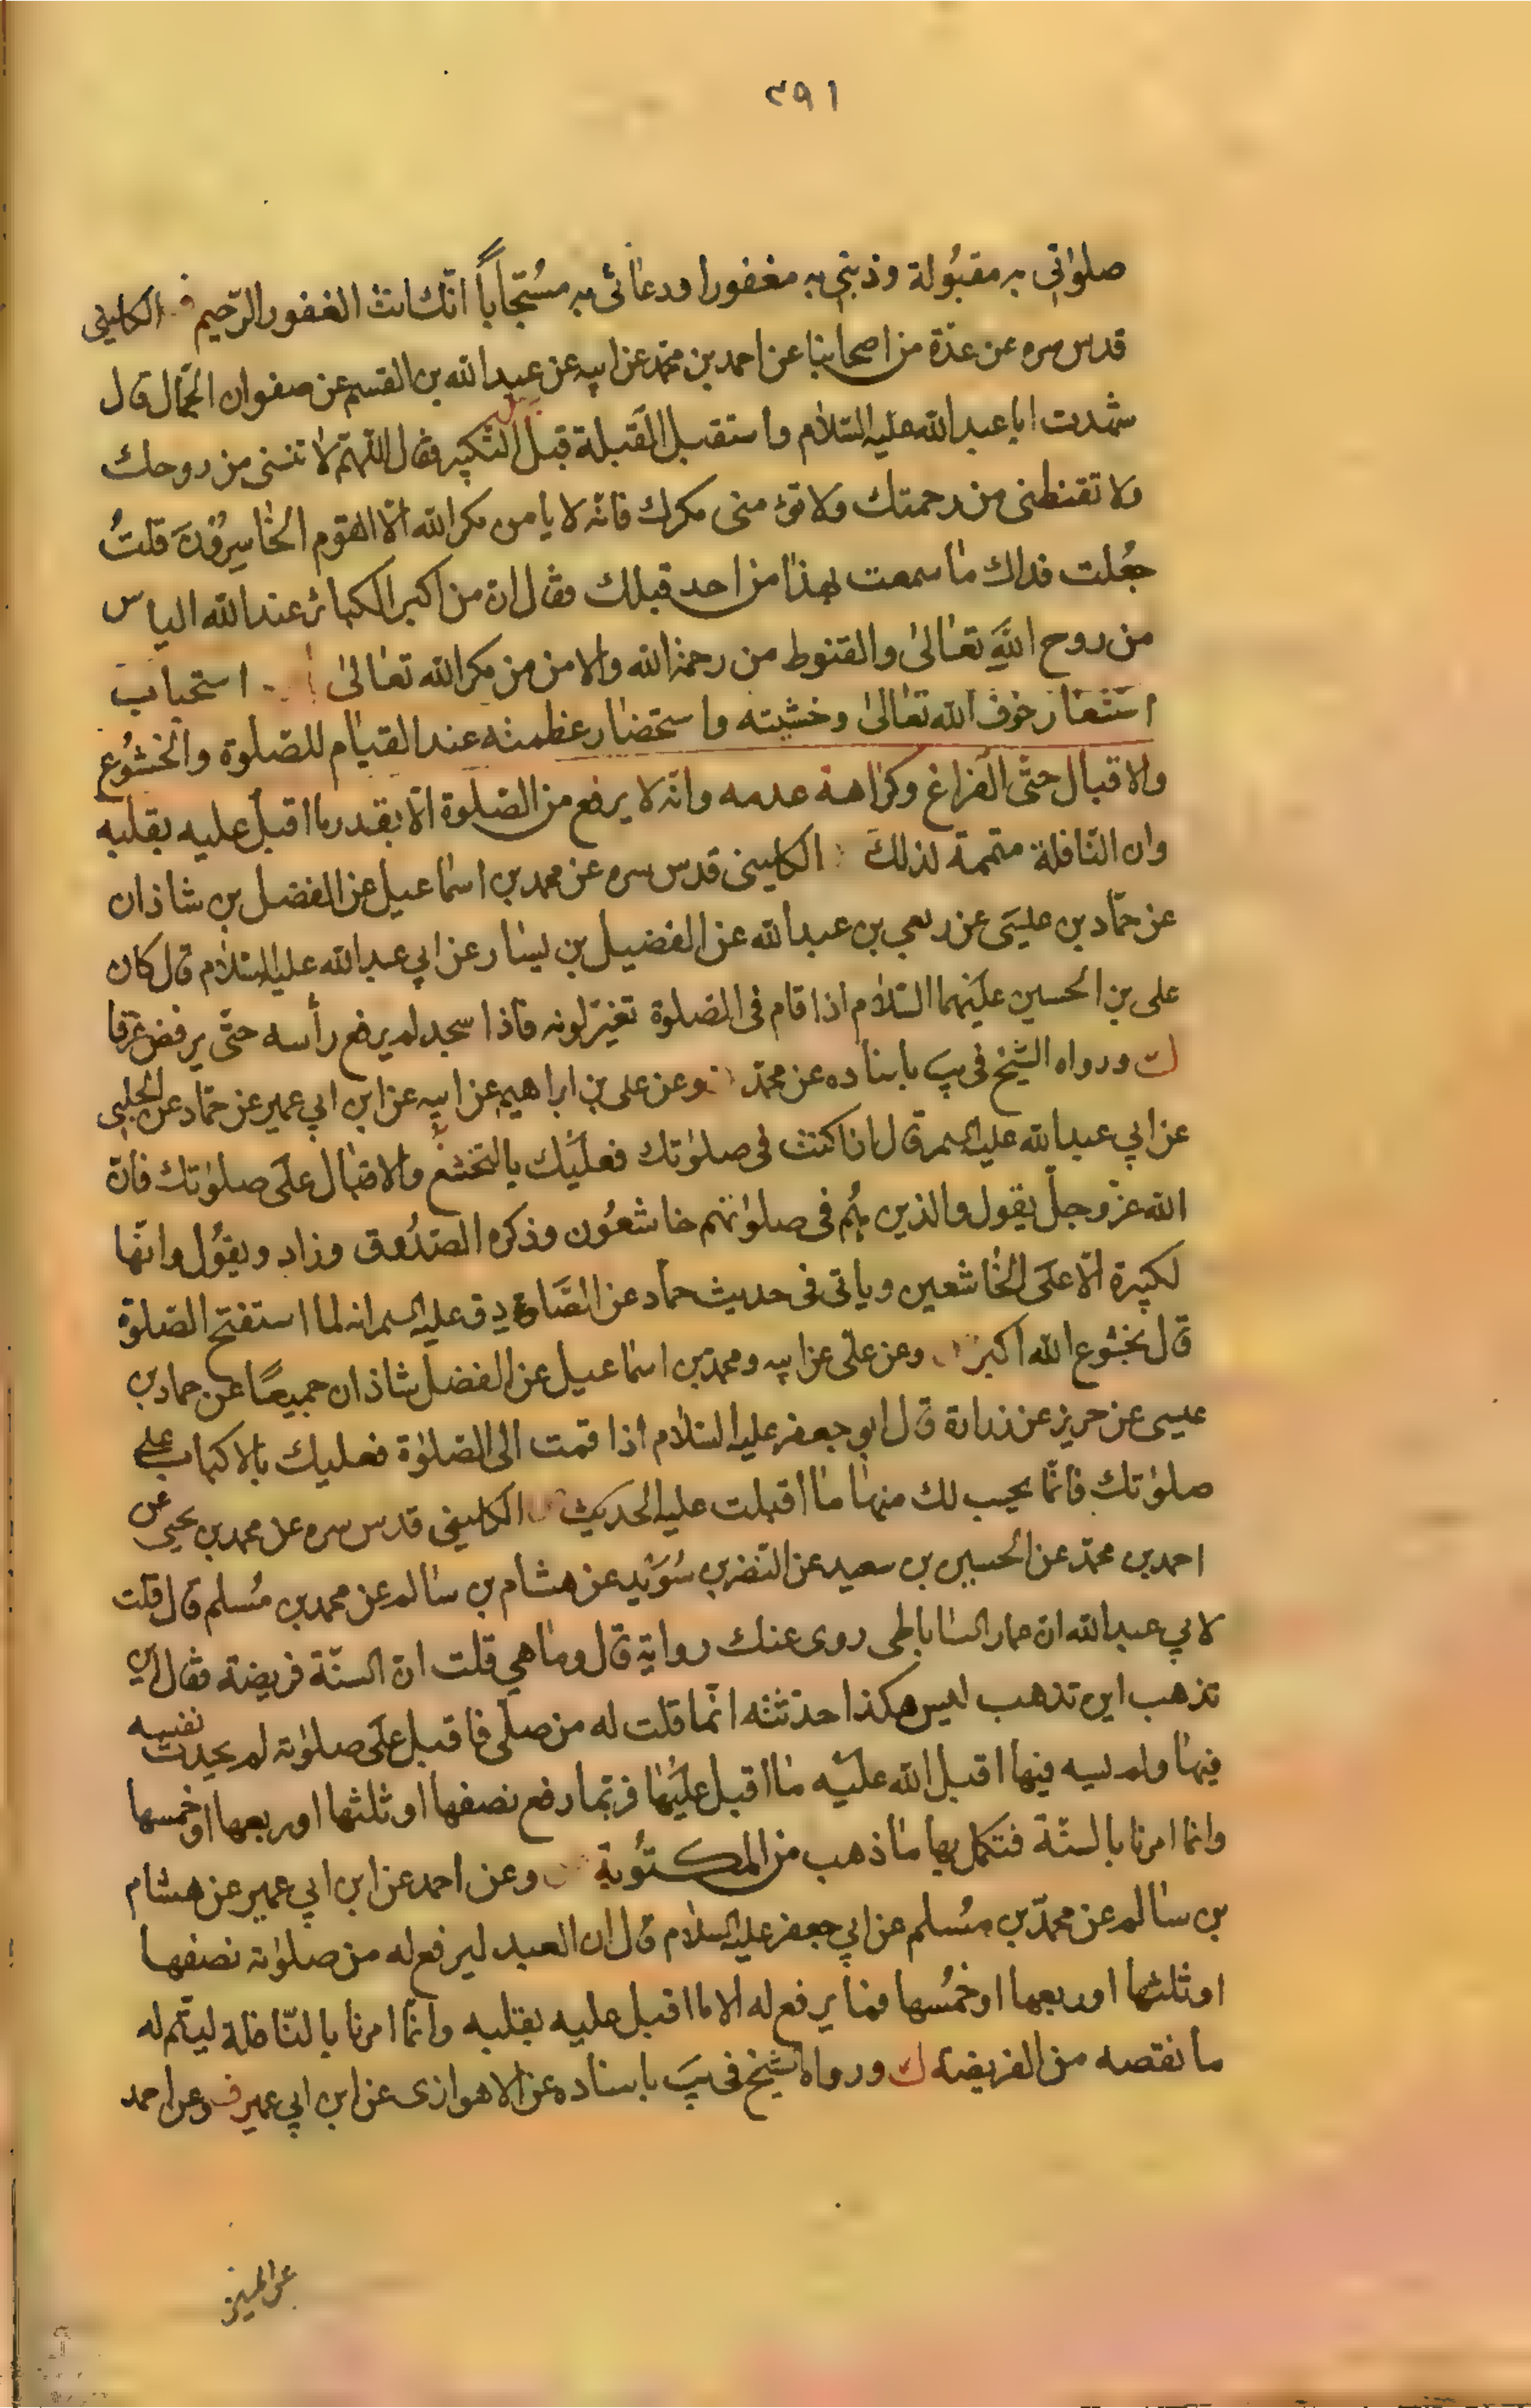 ٣٩١
صلوٰاتي به مقبُولة وذنبي به مغفورا ودعٰائى به مسُتجاباً انّك انت الغفور الرّحيم الكلينى
قدس سره عن عدّة من اصحابنا عن احمد بن محمّد عن ابيه عن عبد الله بن القسم عن صفوان الجمّال قال
شهدت ابا عبد الله عليه السّلام واستقبل القبلة قبل التكبير فقال اللّهمّ لا تنسنى من روحك
ولا تقنطنى من رحمتك ولا تؤمنى مكرك فانّه لا يامن مكر الله الّا القوم الخٰاسِروُنَ قلتُ
جعُلت فداك مٰا سمعت بهذٰا من احد قبلك فقال ان من اكبر الكبائر عند الله الياس
من روح اللّٰهِ تعٰالىٰ والقنوط من رحمة الله والامن من مكر الله تعٰالىٰ استحباب
استشعٰار خوف الله تعٰالىٰ وخشيته واستحضٰار عظمته عند القيٰام للصّلوة والخشُوع
والاقبال حتّى الفراغ وكرٰاهة عدمه وانّه لا يرفع من الصّلوة الّا بقدر ما اقبل عليه بقلبه
وان النّافلة متممة لذلكَ الكلينى قدس سره عن محمد بن اسمٰاعيل عن الفضل بن شاذان
عن حمّاد بن عليسَى عن ربعي بن عبد الله عن الفضيل بن يسٰار عن ابي عبد الله عليه السّلام قال كان
على بن الحسين عليَهما السّلام اذا قام فى الصّلوة تغيّر لونه فاذا سجد لم يرفع رأسه حتّى يرفض عرقا
ك ورواه الشّيخ فى يبَ باسناده عن محمّد وعن على بن ابراهيم عن ابيه عن ابن ابي عمير عن حمّاد عن الحلبي
عن ابي عبد الله عليه السم قال اذا كنت فى صلوٰتك فعليَك بالتخشّع والاقبٰال علَى صلوٰتك فانّ
الله عزّ وجلّ يقول والذين هُم فى صلوٰتهم خاشعُون وذكره الصّدُوق وزاد ويقوُل وانّها
لكبيرة الّا علَى الخٰاشعين وياتى فى حديث حمّاد عن الصَّادِق عليه السم انه لما استفتح الصّلوة
قال بخشوع الله اكبر وعن علىّ عن ابيه ومحمّد بن اسمٰاعيل عن الفضل شاذان جميعًا عن حماد بن
عيسى عن حريز عن زرارة قال ابو جعفر عليه السّلام اذا قمت الى الصّلوٰة فعليك بالاكباب على
صلوٰتك فانّما يحسب لك منهٰا مٰا اقبلت عليه الحديث الكلينى قدس سره عن محمد بن يحيى عن
احمد بن محمّد عن الحسين بن سعيد عن النّضر بن سُوَيْد عن هشام بن سٰالم عن محمد بن مُسلم قال قلت
لابي عبد الله ان عمار السٰاباطى روى عنك رواية قال ومٰا هي قلت انّ السنّة فريضة فقال اين
تذهب اين تذهب ليس هكذا حدّثته انّما قلت له من صلّى فاقبل علَى صلوٰته لم يحدث نفسه
فيهٰا ولم يسه فيها اقبل الله عليَه مٰا اقبل عليَهٰا فربّما رفع نصفها او ثلثها او ربعها او خمسها
وانما امرنا بالسنّة فتكمل بها مٰا ذهب من المكتوُبة وعن احمد عن ابن ابي عمير عن هشام
بن سٰالم عن محمّد بن مسُلم عن ابي جعفر عليه السلام قال ان العبد ليرفع له من صلوٰته نصفها
او ثلثها او ربعها او خمُسها فمٰا يرفع له الا ما اقبل عليه بقلبه وانّما امرنا بالنّافلة ليتّم له
ما نقصه من الفريضة ك ورواه الشيخ فى يبَ باسناده عن الاهوازى عن ابن ابي عمير ف وعن احمد